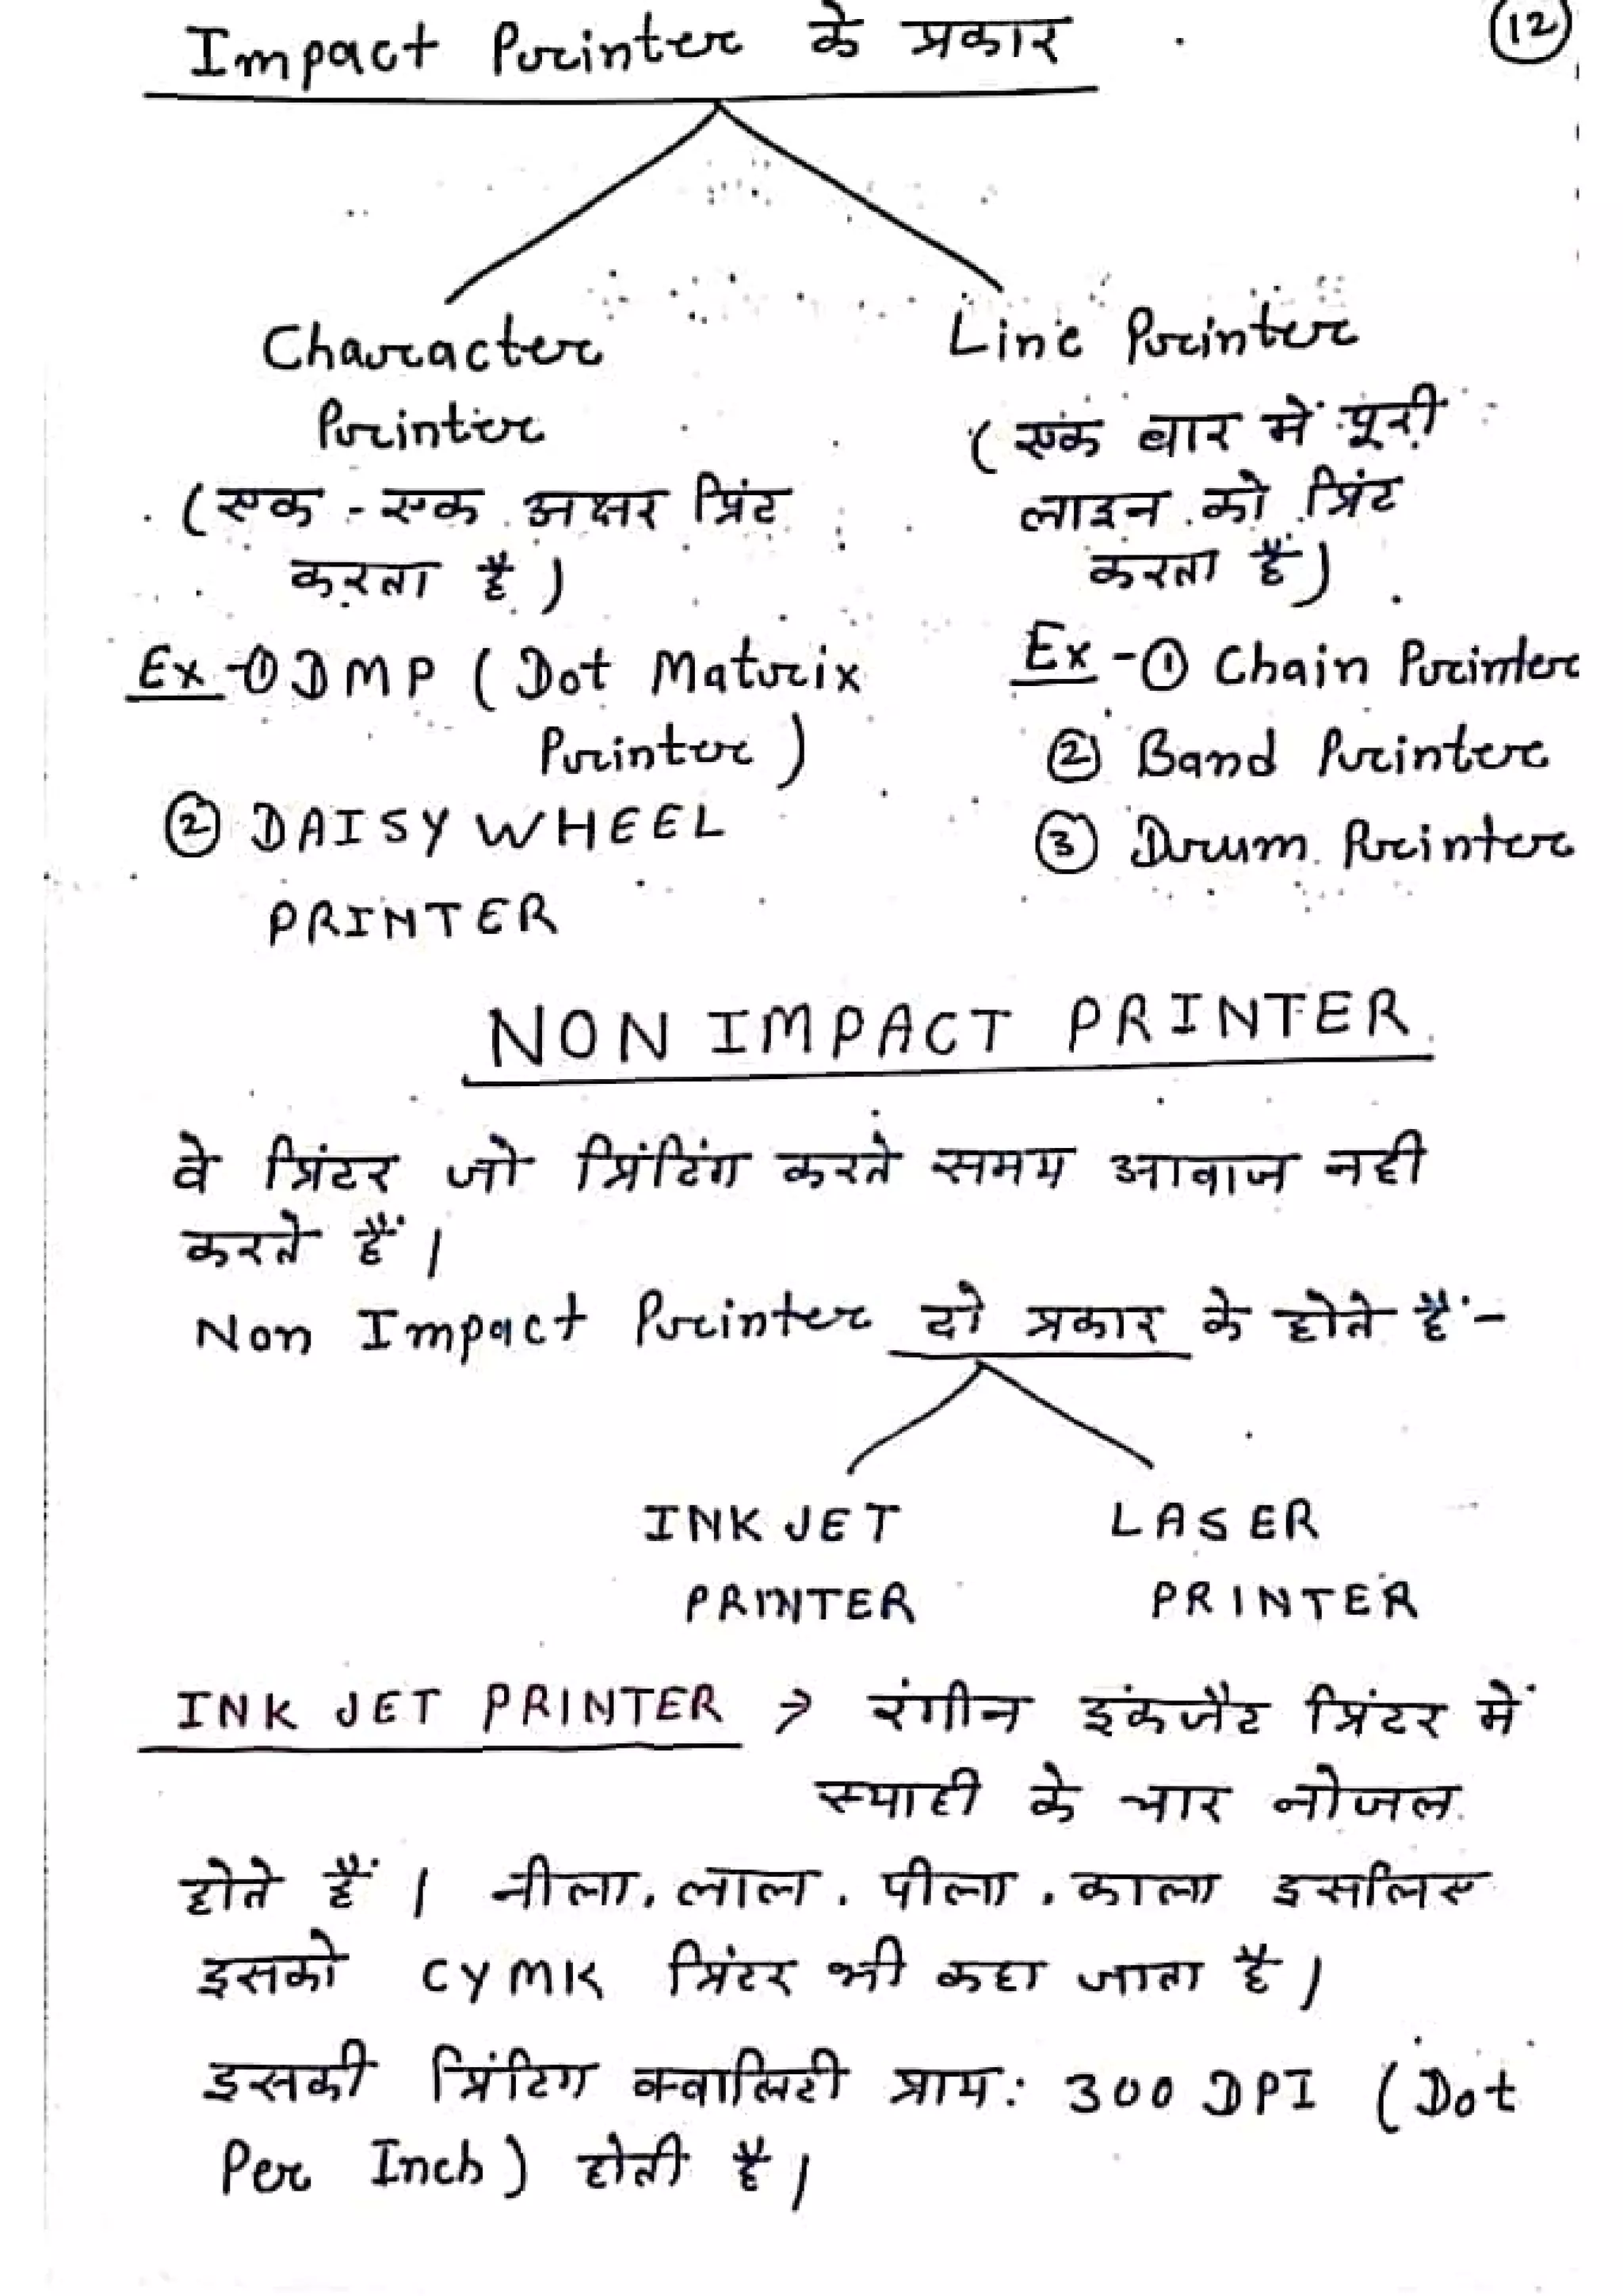 Impact Printer के प्रकार
12
Character
Printer
(एक - एक अक्षर प्रिंट
करता है)
Ex-① DMP (Dot Matrix
Printer)
② DAISY WHEEL
PRINTER
Line Printer
(एक बार में पूरी
लाइन को प्रिंट
करता हैं)
Ex-① Chain Printer
② Band Printer
③ Drum Printer
NON IMPACT PRINTER
वे प्रिंटर जो प्रिंटिंग करते समय आवाज नही
करते हैं।
Non Impact Printer दो प्रकार के होते हैं-
INK JET
PRINTER
LASER
PRINTER
INK JET PRINTER → रंगीन इंकजैट प्रिंटर में
स्याही के चार नोजल
होते हैं। नीला, लाल, पीला, काला इसलिए
इसको CYMK प्रिंटर भी कहा जाता है।
इसकी प्रिंटिग क्वालिटी प्राय: 300 DPI (Dot
Per Inch) होती है।